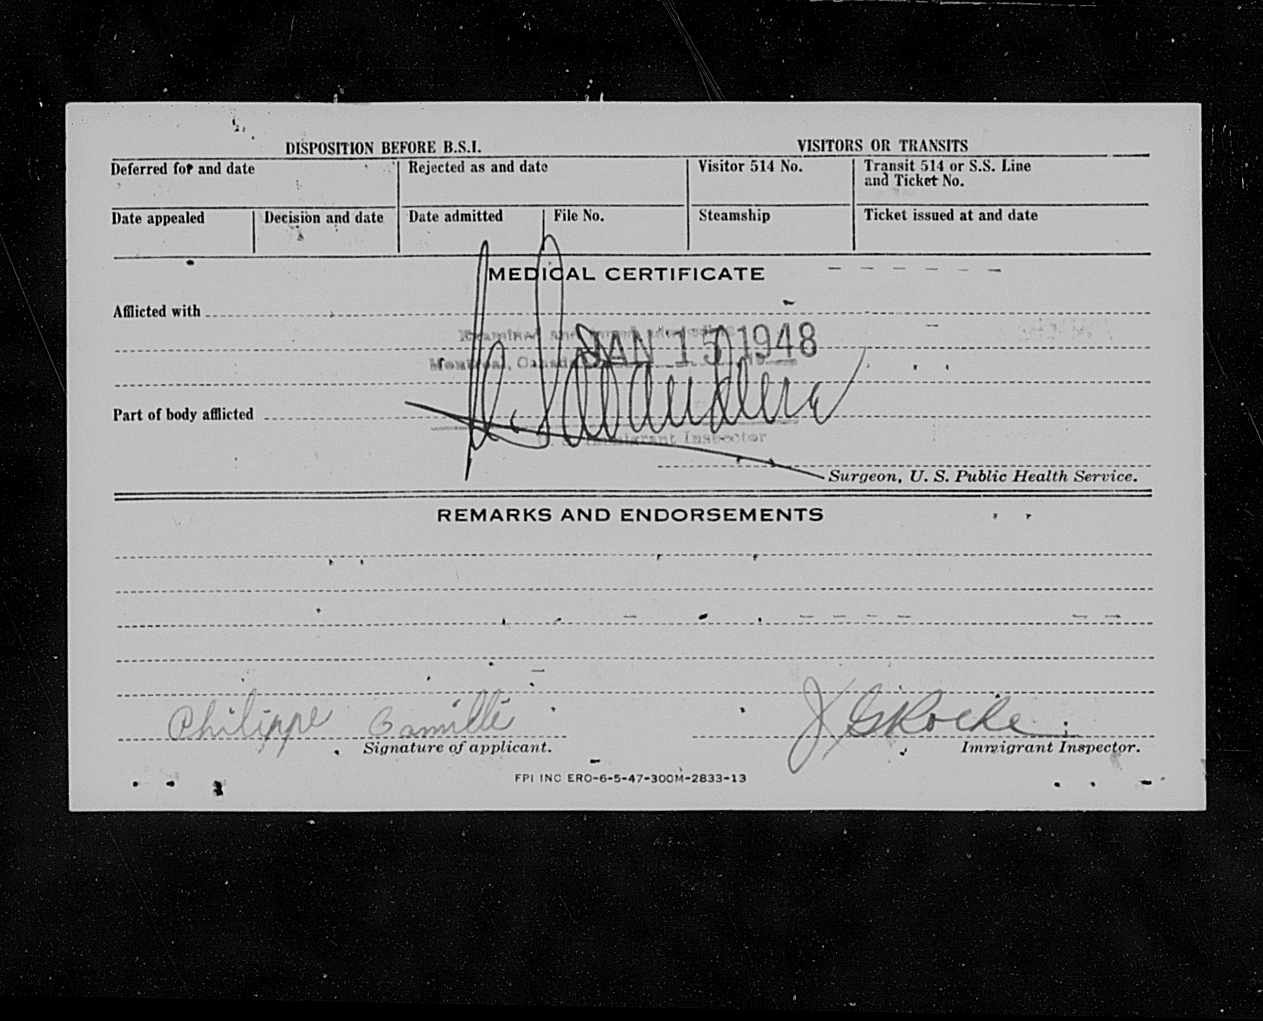 DISPOSITION BEFORE B.S.I.
VISITORS OR TRANSITS
Deferred for and date
Rejected as and date
Visitor 514 No.
Transit 514 or S.S. Line
and Ticket No.
Date appealed
Decision and date
Date admitted
File No.
Steamship
Ticket issued at and date
MEDICAL CERTIFICATE
Afflicted with
Examined and
JAN 15 1948
Montreal, Canada
Part of body afflicted
Immigrant Inspector
Surgeon, U. S. Public Health Service.
REMARKS AND ENDORSEMENTS
Philippe Camille
Signature of applicant.
Immigrant Inspector.
FPI INC ERO-6-5-47-300M-2833-13